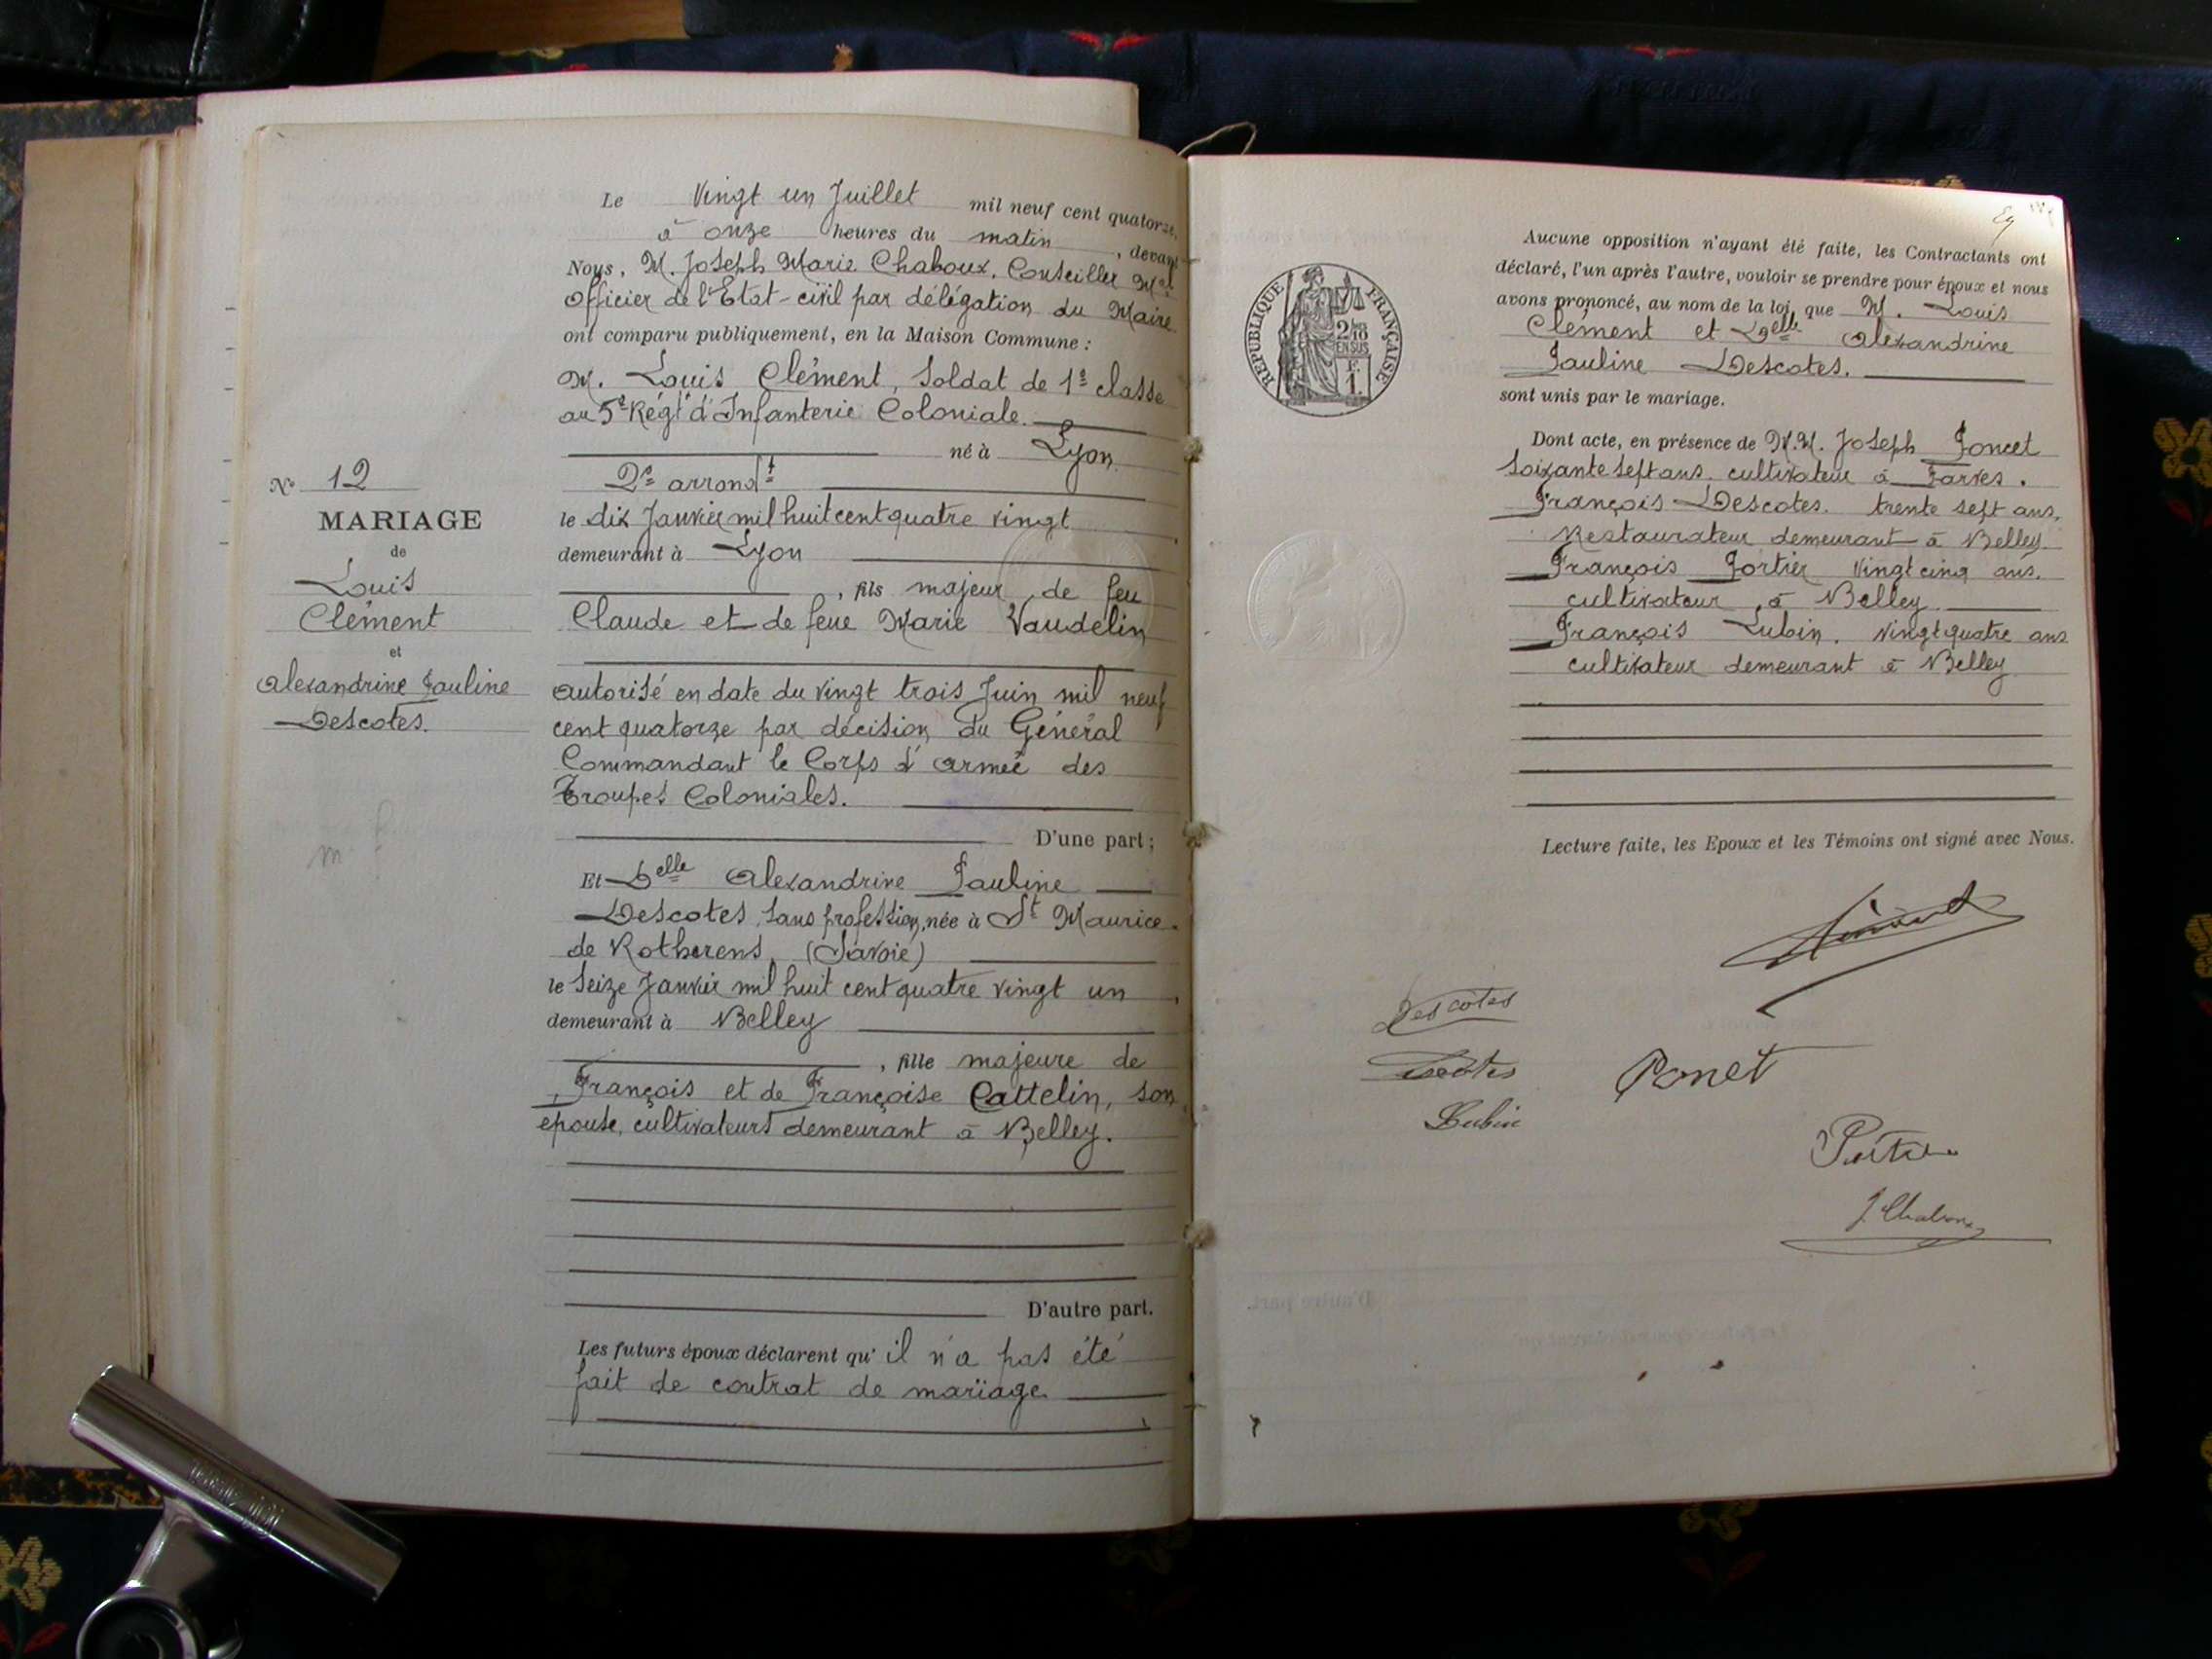 Le Vingt un Juillet mil neuf cent quatorze,
à onze heures du matin, devant
Nous, M. Joseph Marie Chaboux, Conseiller Mal
Officier de l'Etat-civil par délégation du Maire
ont comparu publiquement, en la Maison Commune :
M. Louis Clément, Soldat de 1e classe
au 5e Régt d'Infanterie Coloniale.
né à Lyon
2e arrondt
le dix Janvier mil huit cent quatre vingt
demeurant à Lyon
, fils majeur de feu
Claude et de feue Marie Vaudelin
autorisé en date du vingt trois Juin mil neuf
cent quatorze par décision du Général
Commandant le Corps d'armée des
Troupes Coloniales.
D'une part ;
Et Delle Alexandrine Pauline
Descotes, sans profession, née à St Maurice-
de Rotherens, (Savoie)
le seize Janvier mil huit cent quatre vingt un,
demeurant à Belley
, fille majeure de
François et de Françoise Cattelin, son
épouse, cultivateurs demeurant à Belley.
D'autre part.
Les futurs époux déclarent qu' il n'a pas été
fait de contrat de mariage
No 12
MARIAGE
de
Louis
Clément
et
Alexandrine Pauline
Descotes.
REPUBLIQUE FRANÇAISE
2/10 EN SUS
1 F.
Aucune opposition n'ayant été faite, les Contractants ont
déclaré, l'un après l'autre, vouloir se prendre pour époux et nous
avons prononcé, au nom de la loi, que M. Louis
Clément et Delle Alexandrine
Pauline Descotes.
sont unis par le mariage.
Dont acte, en présence de M.M. Joseph Poncet
soixante sept ans, cultivateur à Parves.
François Descotes. trente sept ans,
Restaurateur demeurant à Belley
François Portier vingt cinq ans.
cultivateur à Belley
François Lubin. vingt quatre ans
cultivateur demeurant à Belley
Lecture faite, les Epoux et les Témoins ont signé avec Nous.
Descotes
Descotes
Lubin
Ponet
J. Chaboux